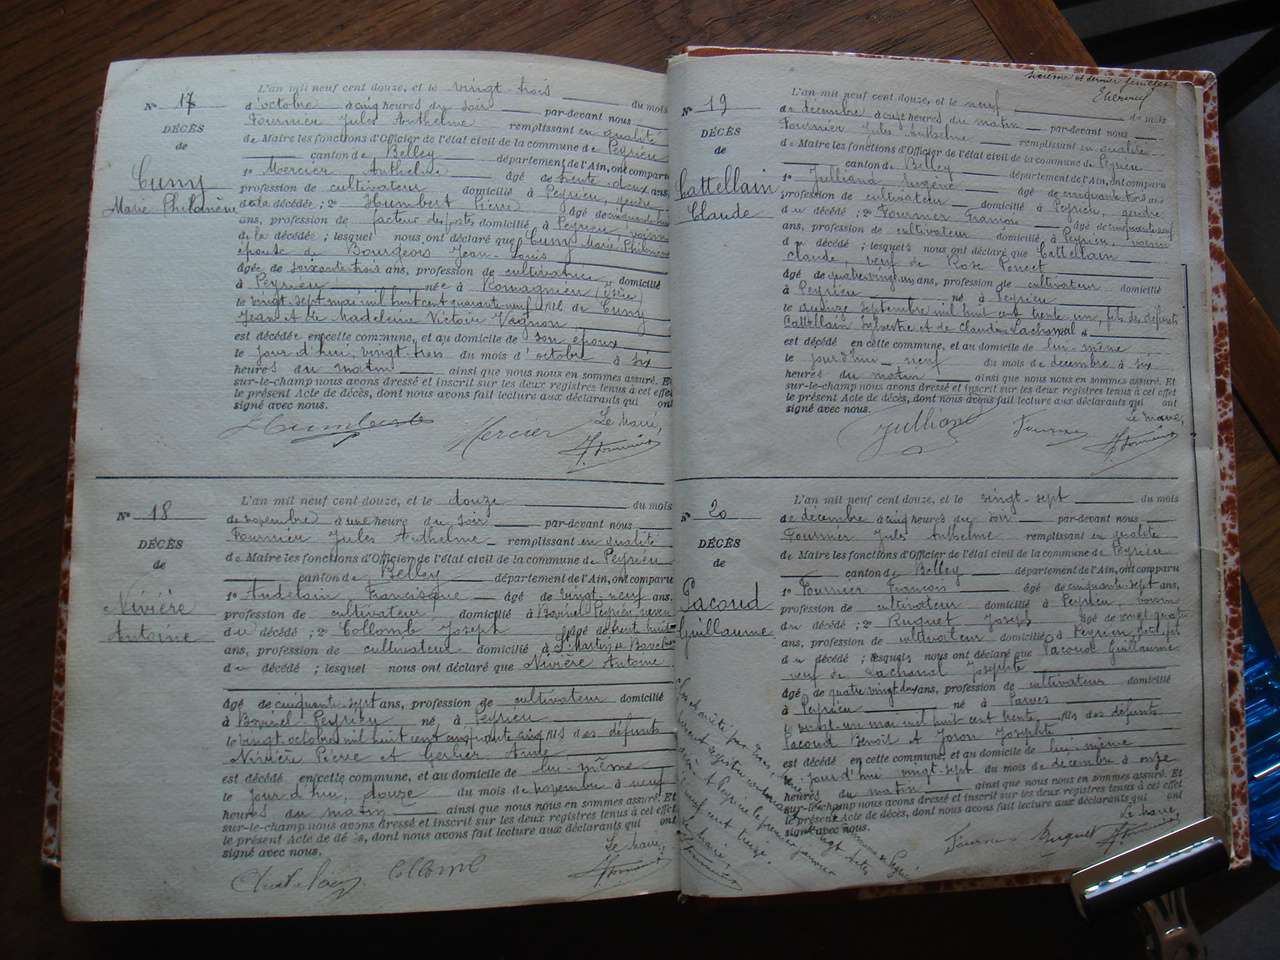 N° 17
DÉCÈS
de
Cuny
Marie Philomène
L'an mil neuf cent douze, et le vingt-trois du mois
d'octobre à cinq heures du soir par-devant nous
Fournier Jules Anthelme remplissant en qualité
de Maire les fonctions d'Officier de l'état civil de la commune de Peyrieu
canton de Belley département de l'Ain, ont comparu
1° Mercier Anthelme âgé de trente-deux ans,
profession de cultivateur domicilié à Peyrieu, gendre
de la décédée ; 2° Humbert Pierre âgé de cinquante
ans, profession de facteur des postes, domicilié à Peyrieu voisin
de la décédée ; lesquels nous ont déclaré que Cuny Marie Philomène
épouse de Bourgeois Jean-Louis
âgée de soixante trois ans, profession de cultivatrice domiciliée
à Peyrieu née à Romagnieu (Isère)
le vingt-sept mai mil huit cent quarante neuf, fille de Cuny
Jean et de Madeleine Victoire Vagnon
est décédée en cette commune, et au domicile de son époux
le jour d'hui, vingt-trois du mois d'octobre à six
heures du matin ainsi que nous nous en sommes assuré. Et
sur-le-champ nous avons dressé et inscrit sur les deux registres tenus à cet effet
le présent Acte de décès, dont nous avons fait lecture aux déclarants qui ont
signé avec nous.
Le Maire,
Humbert Mercier J. Fournier
N° 18
DÉCÈS
de
Nivière
Antoine
L'an mil neuf cent douze, et le douze du mois
de novembre à une heure du soir par-devant nous
Fournier Jules Anthelme remplissant en qualité
de Maire les fonctions d'Officier de l'état civil de la commune de Peyrieu
canton de Belley département de l'Ain, ont comparu
1° Andelain Francisque âgé de vingt-neuf ans,
profession de cultivateur domicilié à Peyrieu, neveu
du décédé ; 2° Collomb Joseph âgé de trente huit
ans, profession de cultivateur domicilié à St Martin de Bavel
du décédé ; lesquels nous ont déclaré que Nivière Antoine
âgé de cinquante-sept ans, profession de cultivateur domicilié
à Peyrieu né à Peyrieu
le vingt octobre mil huit cent cinquante cinq fils des défunts
Nivière Pierre et Gerlier Anne
est décédé en cette commune, et au domicile de lui-même
le jour d'hui, douze du mois de novembre à neuf
heures du matin ainsi que nous nous en sommes assuré. Et
sur-le-champ nous avons dressé et inscrit sur les deux registres tenus à cet effet
le présent Acte de décès, dont nous avons fait lecture aux déclarants qui ont
signé avec nous.
Le maire,
Collomb J. Fournier
sixième et dernier feuillet
N° 19
DÉCÈS
de
Cattellain
Claude
L'an mil neuf cent douze, et le neuf du mois
de décembre à onze heures du matin par-devant nous
Fournier Jules Anthelme remplissant en qualité
de Maire les fonctions d'Officier de l'état civil de la commune de Peyrieu
canton de Belley département de l'Ain, ont comparu
1° Julliand Eugène âgé de cinquante trois ans
profession de cultivateur domicilié à Peyrieu, gendre
du décédé ; 2° Fournier âgé de cinquante
ans, profession de cultivateur domicilié à Peyrieu, voisin
du décédé ; lesquels nous ont déclaré que Cattellain
Claude, veuf de Rose Poncet
âgé de quatre vingt un ans, profession de cultivateur domicilié
à Peyrieu né à Peyrieu
le quinze septembre mil huit cent trente un, fils des défunts
Cattellain Sylvestre et de Claudine Lachanal
est décédé en cette commune, et au domicile de lui-même
le jourd'hui neuf du mois de décembre à six
heures du matin ainsi que nous nous en sommes assuré. Et
sur-le-champ nous avons dressé et inscrit sur les deux registres tenus à cet effet
le présent Acte de décès, dont nous avons fait lecture aux déclarants qui ont
signé avec nous.
Le maire,
Julliand Fournier J. Fournier
N° 20
DÉCÈS
de
Pacoud
Guillaume
L'an mil neuf cent douze, et le vingt-sept du mois
de décembre à cinq heures du soir par-devant nous
Fournier Jules Anthelme remplissant en qualité
de Maire les fonctions d'Officier de l'état civil de la commune de Peyrieu
canton de Belley département de l'Ain, ont comparu
1° Fournier François âgé de cinquante-sept ans,
profession de cultivateur domicilié à Peyrieu, voisin
du décédé ; 2° Buguet Joseph âgé de vingt quatre
ans, profession de cultivateur domicilié à Peyrieu, petit fils
du décédé ; lesquels nous ont déclaré que Pacoud Guillaume
veuf de Lachanal Josephte
âgé de quatre vingt deux ans, profession de cultivateur domicilié
à Peyrieu né à Parves
le vingt un mai mil huit cent trente fils des défunts
Pacoud Benoît et Joron Josephte
est décédé en cette commune, et au domicile de lui-même
le jourd'hui vingt-sept du mois de décembre à onze
heures du matin ainsi que nous nous en sommes assuré. Et
sur-le-champ nous avons dressé et inscrit sur les deux registres tenus à cet effet
le présent Acte de décès, dont nous avons fait lecture aux déclarants qui ont
signé avec nous.
Le maire,
Fournier Buguet J. Fournier